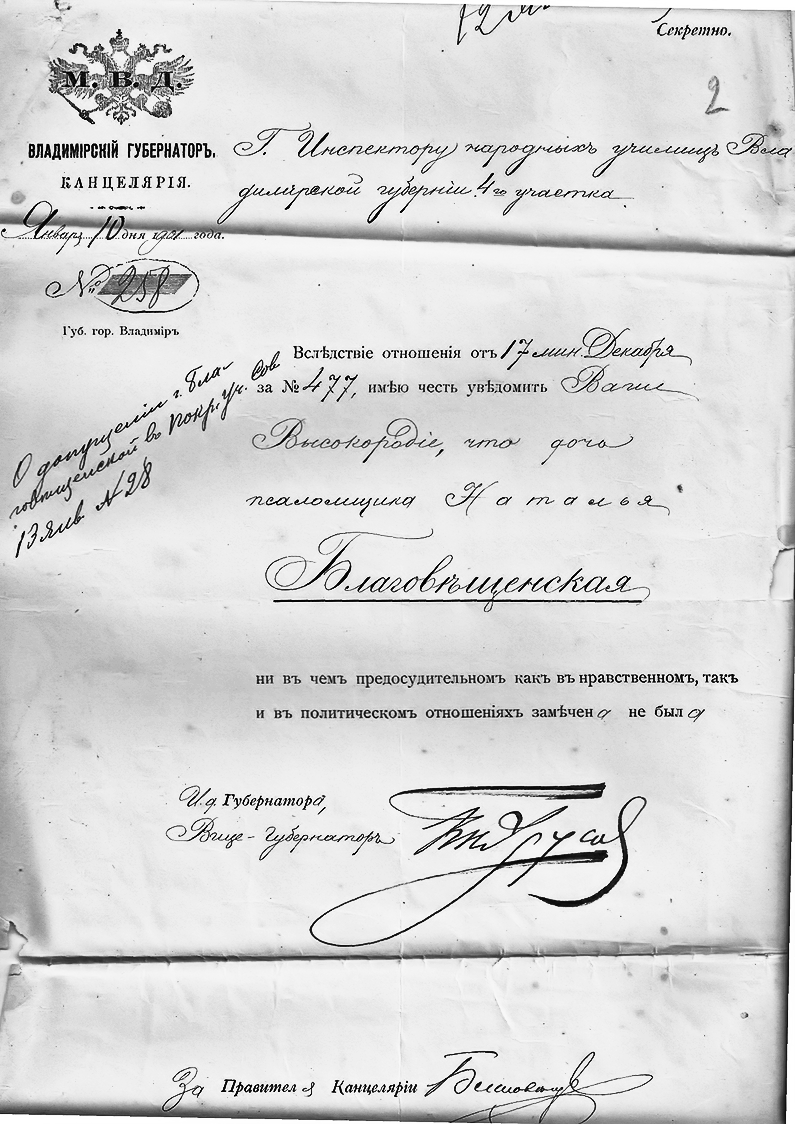 Секретно.
2
М. В. Д.
ВЛАДИМІРСКІЙ ГУБЕРНАТОРЪ,
КАНЦЕЛЯРІЯ.
Января 10 дня 1901 года.
№ 258
Губ. гор. Владиміръ
Г. Инспектору народныхъ училищъ Вла
димірской губерніи 4го участка
Вслѣдствіе отношенія отъ 17 мин. Декабря
за № 477, имѣю честь увѣдомить Ваше
Высокородіе, что дочь
псаломщика Наталья
Благовѣщенская
ни въ чемъ предосудительномъ какъ въ нравственномъ, такъ
и въ политическомъ отношеніяхъ замѣчена не была
О допущеніи г. Бла-
говѣщенской въ Покр. уч. Сов
13 Янв № 28
И. д. Губернатора,
Вице-Губернаторъ
За Правителя Канцеляріи